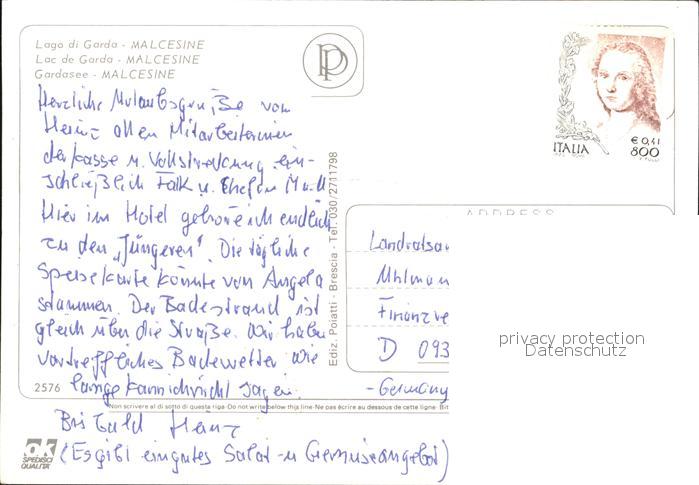 Lago di Garda - MALCESINE
Lac de Garda - MALCESINE
Gardasee - MALCESINE
Herzliche Urlaubsgrüße von
Heinz allen Mitarbeiterinnen
der Kasse u. Vollstreckung ein-
schließlich Falk u. Stefan
Hier im Hotel gehöre ich endlich
zu den „Jüngeren". Die tägliche
Speisekarte könnte von Angela
stammen. Der Badestrand ist
gleich über die Straße. Wir haben
vortreffliches Badewetter wie
lange kann ich nicht sagen.
Bis bald Heinz
(Es gibt ein gutes Salat- u Gemüseangebot)
2576
Ediz. Poiatti - Brescia - Tel. 030/2711798
Non scrivere al di sotto di questa riga-Do not write below this line-Ne pas écrire au dessous de cette ligne- Bit
ok
SPEDISCI
QUALITA'
PP
ITALIA
€ 0,41
800
ADDRESS
Landratsa
Finanzve
D 093
-Germany
privacy protection
Datenschutz